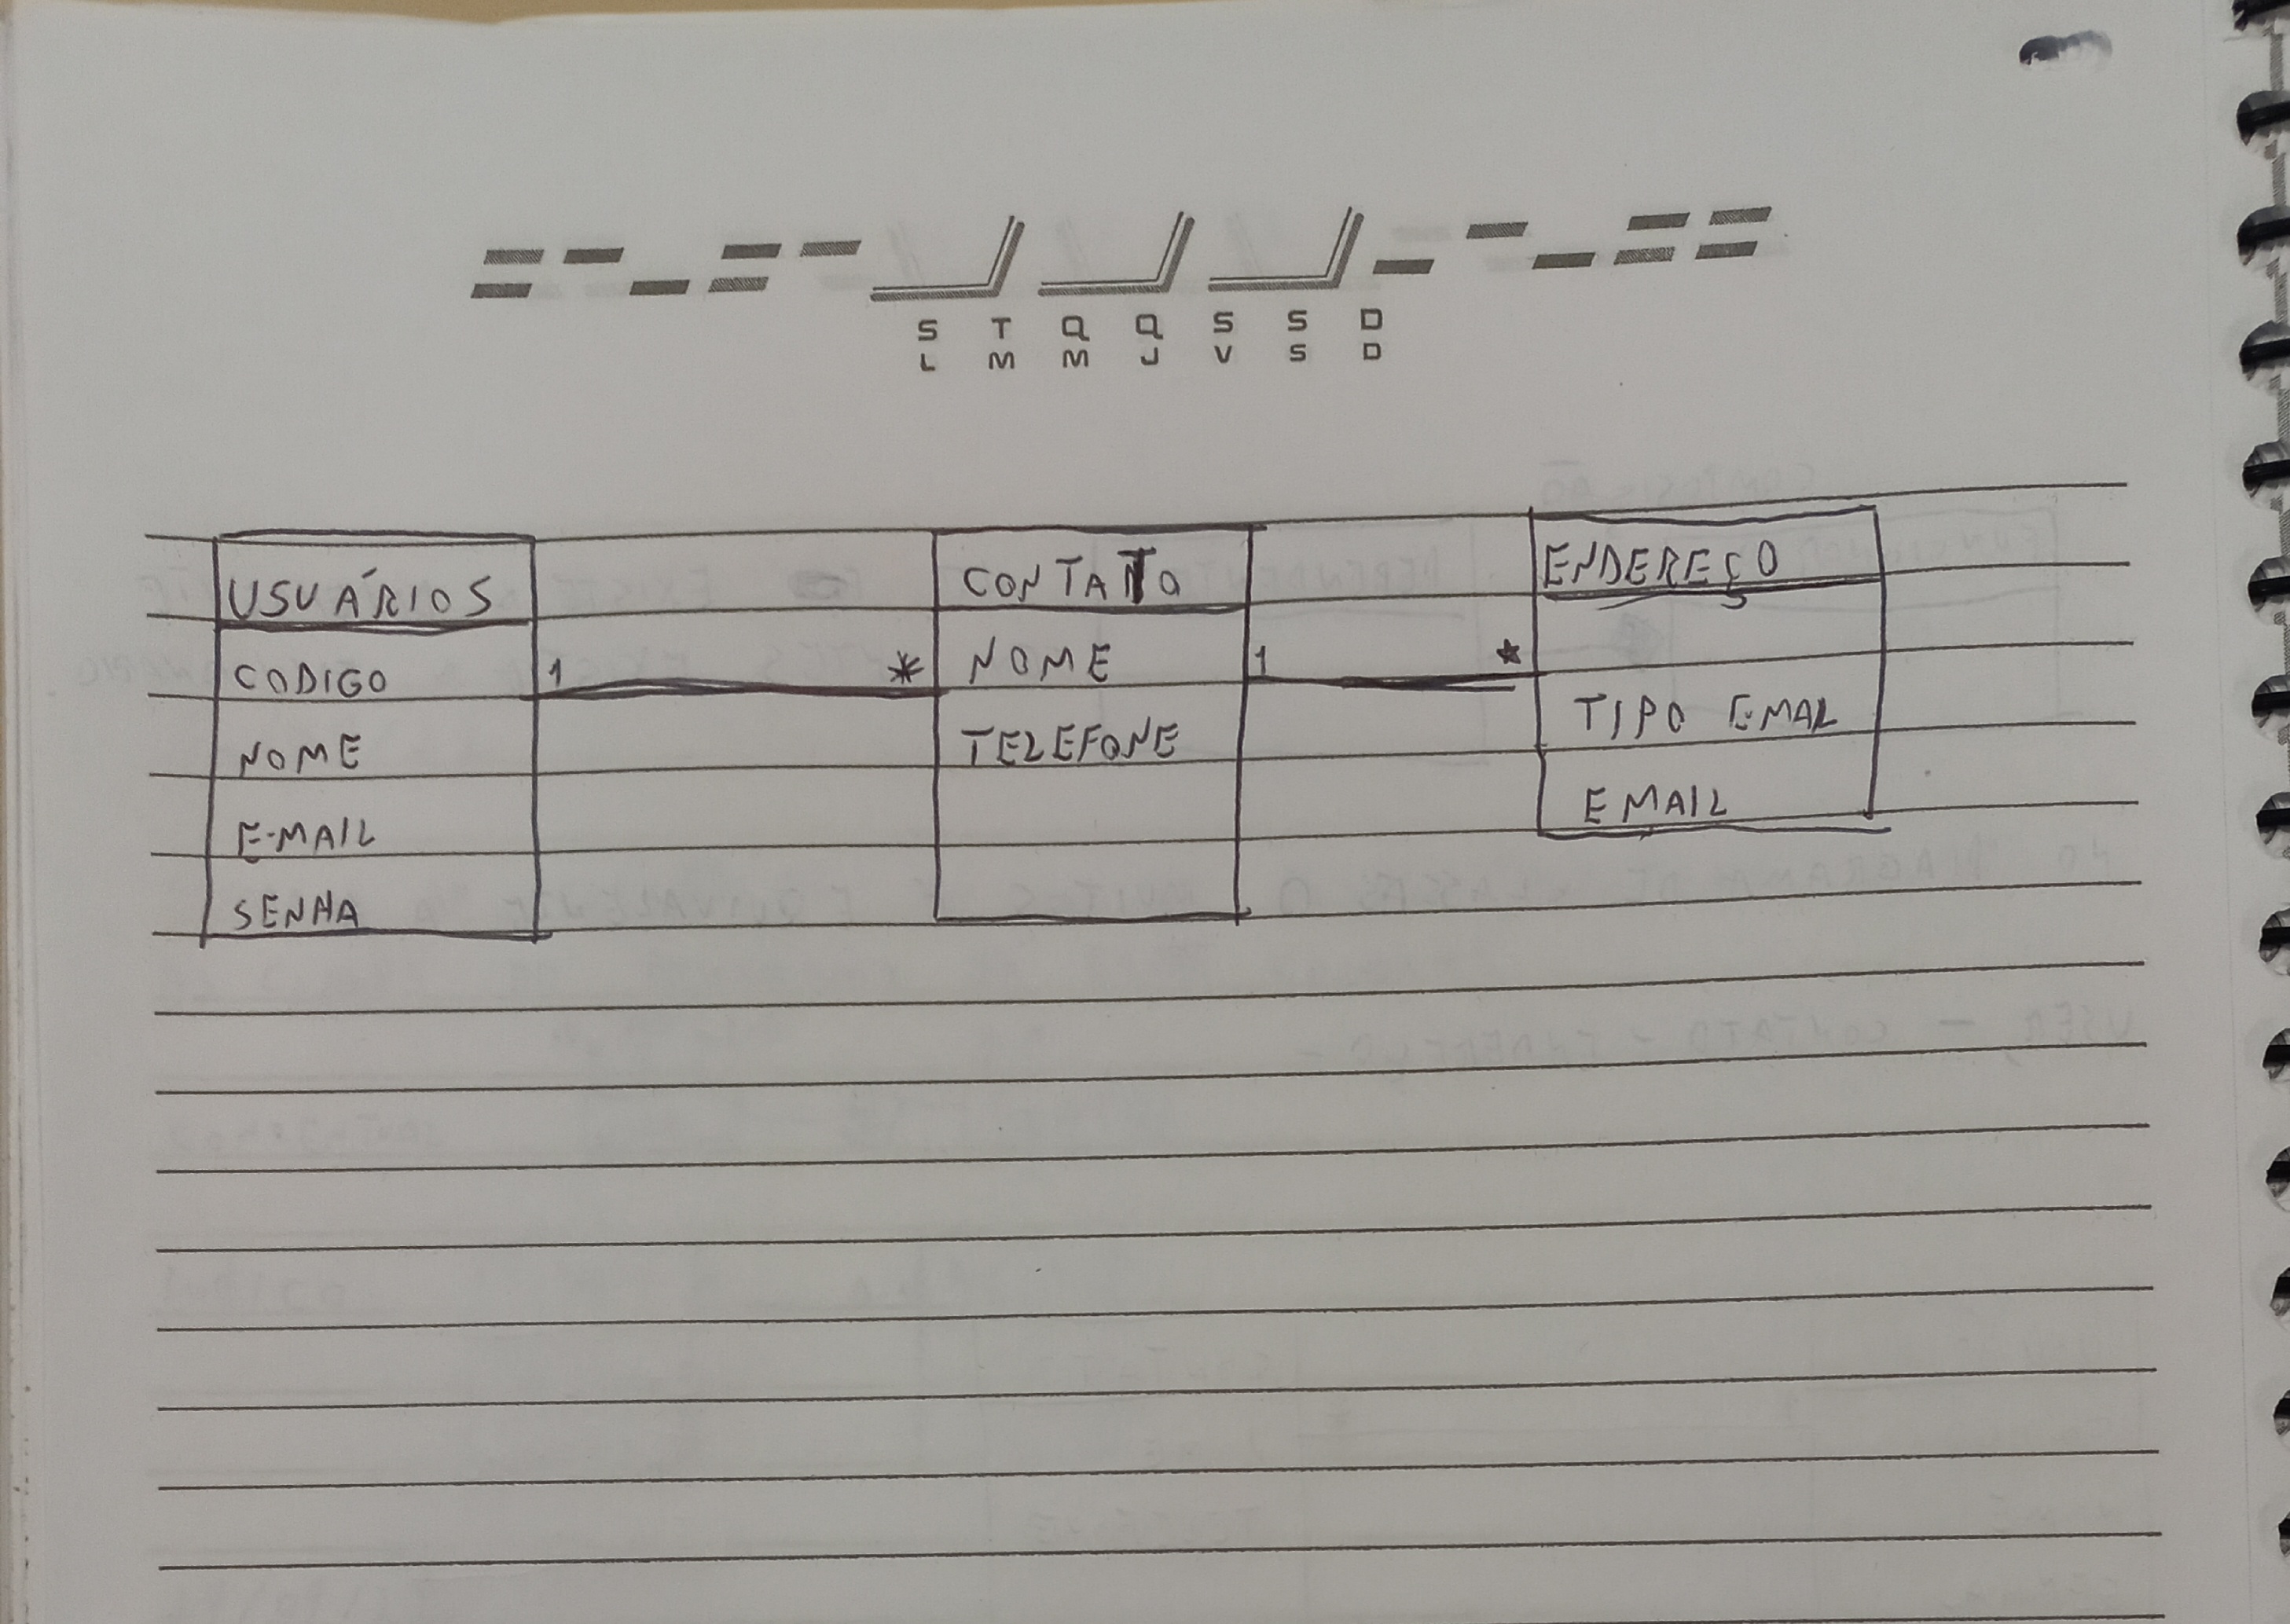 S T Q Q S S D
L M M J V S D
USUÁRIOS
CODIGO
NOME
E-MAIL
SENHA
1 *
CONTATO
NOME
TELEFONE
1 *
ENDEREÇO
TIPO E-MAL
EMAIL